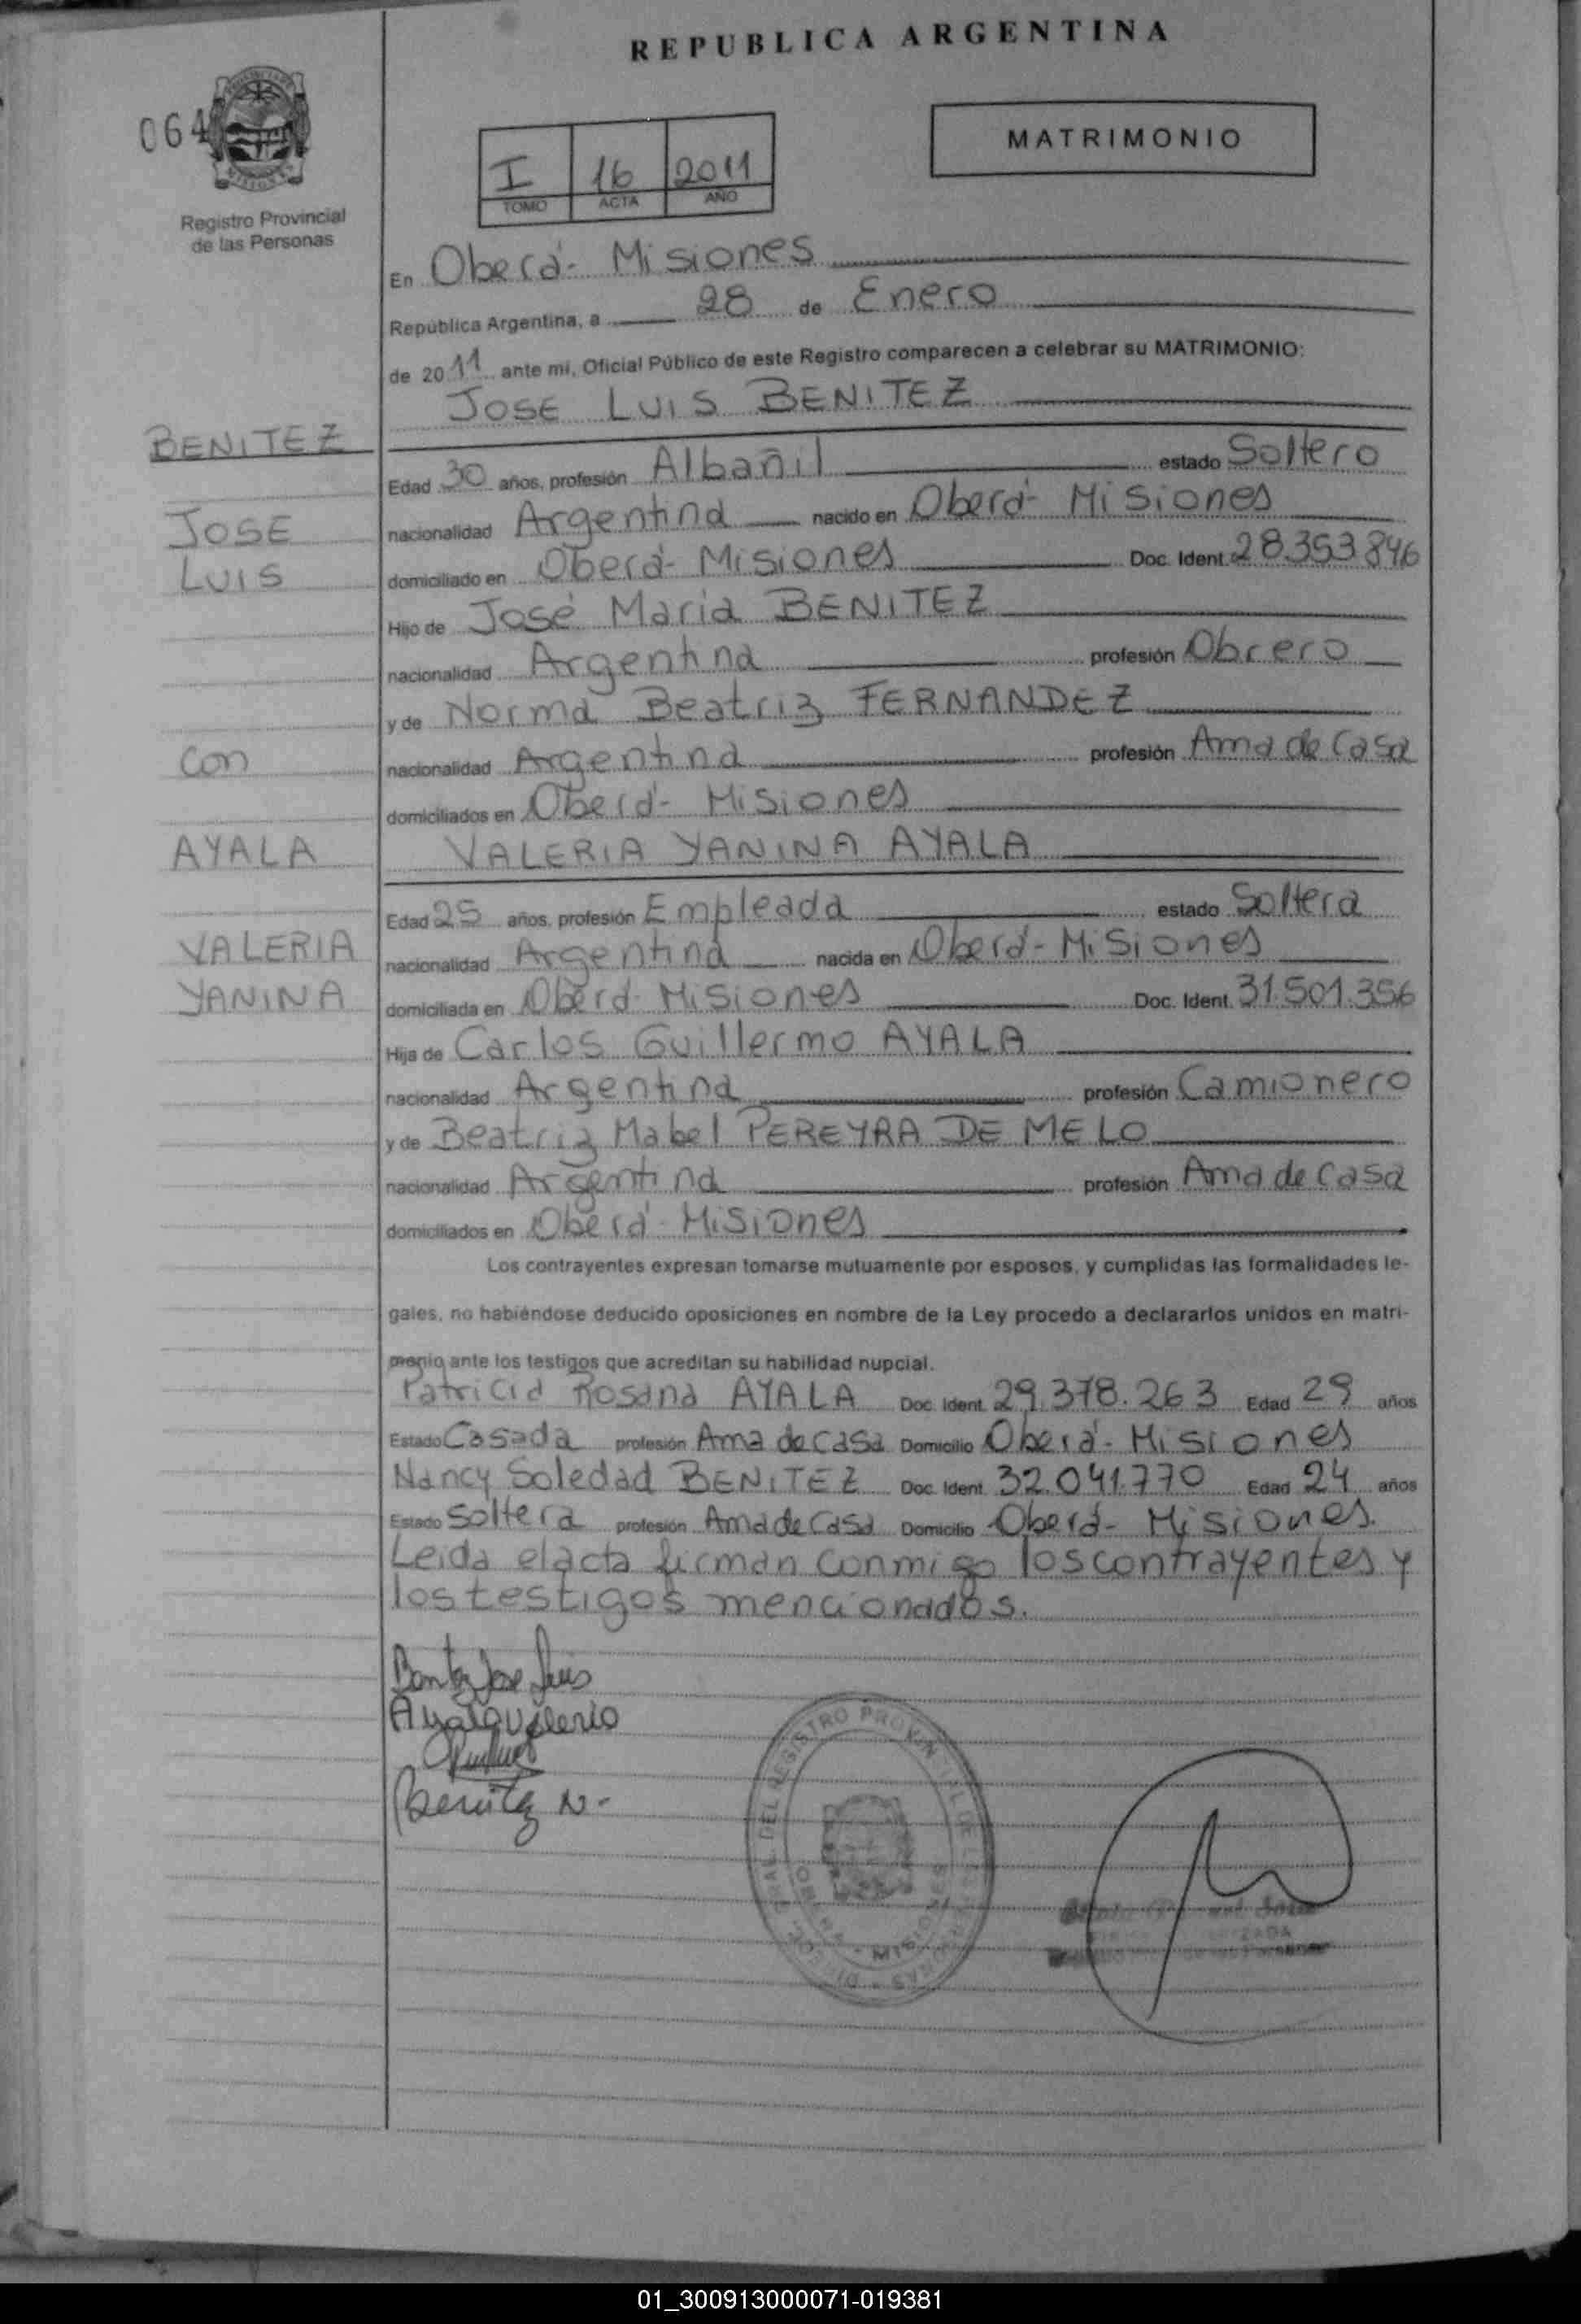 REPUBLICA ARGENTINA
064
MATRIMONIO
I 16 2011
TOMO ACTA AÑO
Registro Provincial
de las Personas
En Oberá - Misiones
República Argentina, a 28 de Enero
de 2011 ante mi, Oficial Público de este Registro comparecen a celebrar su MATRIMONIO:
JOSE LUIS BENITEZ
BENITEZ
Edad 30 años, profesión Albañil estado Soltero
JOSE
nacionalidad Argentina nacido en Oberá - Misiones
LUIS
domiciliado en Oberá - Misiones Doc. Ident. 28.353.846
Hijo de José Maria BENITEZ
nacionalidad Argentina profesión Obrero
y de Norma Beatriz FERNANDEZ
con
nacionalidad Argentina profesión Ama de Casa
domiciliados en Oberá - Misiones
AYALA
VALERIA YANINA AYALA
Edad 25 años, profesión Empleada estado Soltera
VALERIA
nacionalidad Argentina nacida en Oberá - Misiones
YANINA
domiciliada en Oberá - Misiones Doc. Ident. 31.501.356
Hija de Carlos Guillermo AYALA
nacionalidad Argentina profesión Camionero
y de Beatriz Mabel PEREYRA DE MELO
nacionalidad Argentina profesión Ama de Casa
domiciliados en Oberá - Misiones
Los contrayentes expresan tomarse mutuamente por esposos, y cumplidas las formalidades le-
gales, no habiéndose deducido oposiciones en nombre de la Ley procedo a declararlos unidos en matri-
monio ante los testigos que acreditan su habilidad nupcial.
Patricia Rosana AYALA Doc. Ident. 29.378.263 Edad 29 años
Estado Casada profesión Ama de Casa Domicilio Oberá - Misiones
Nancy Soledad BENITEZ Doc. Ident. 32.041.770 Edad 24 años
Estado Soltera profesión Ama de Casa Domicilio Oberá - Misiones.
Leida el acta firman conmigo los contrayentes y
los testigos mencionados.
Benitez Jose Luis
Ayala Valeria
Benitez N.-
01_300913000071-019381